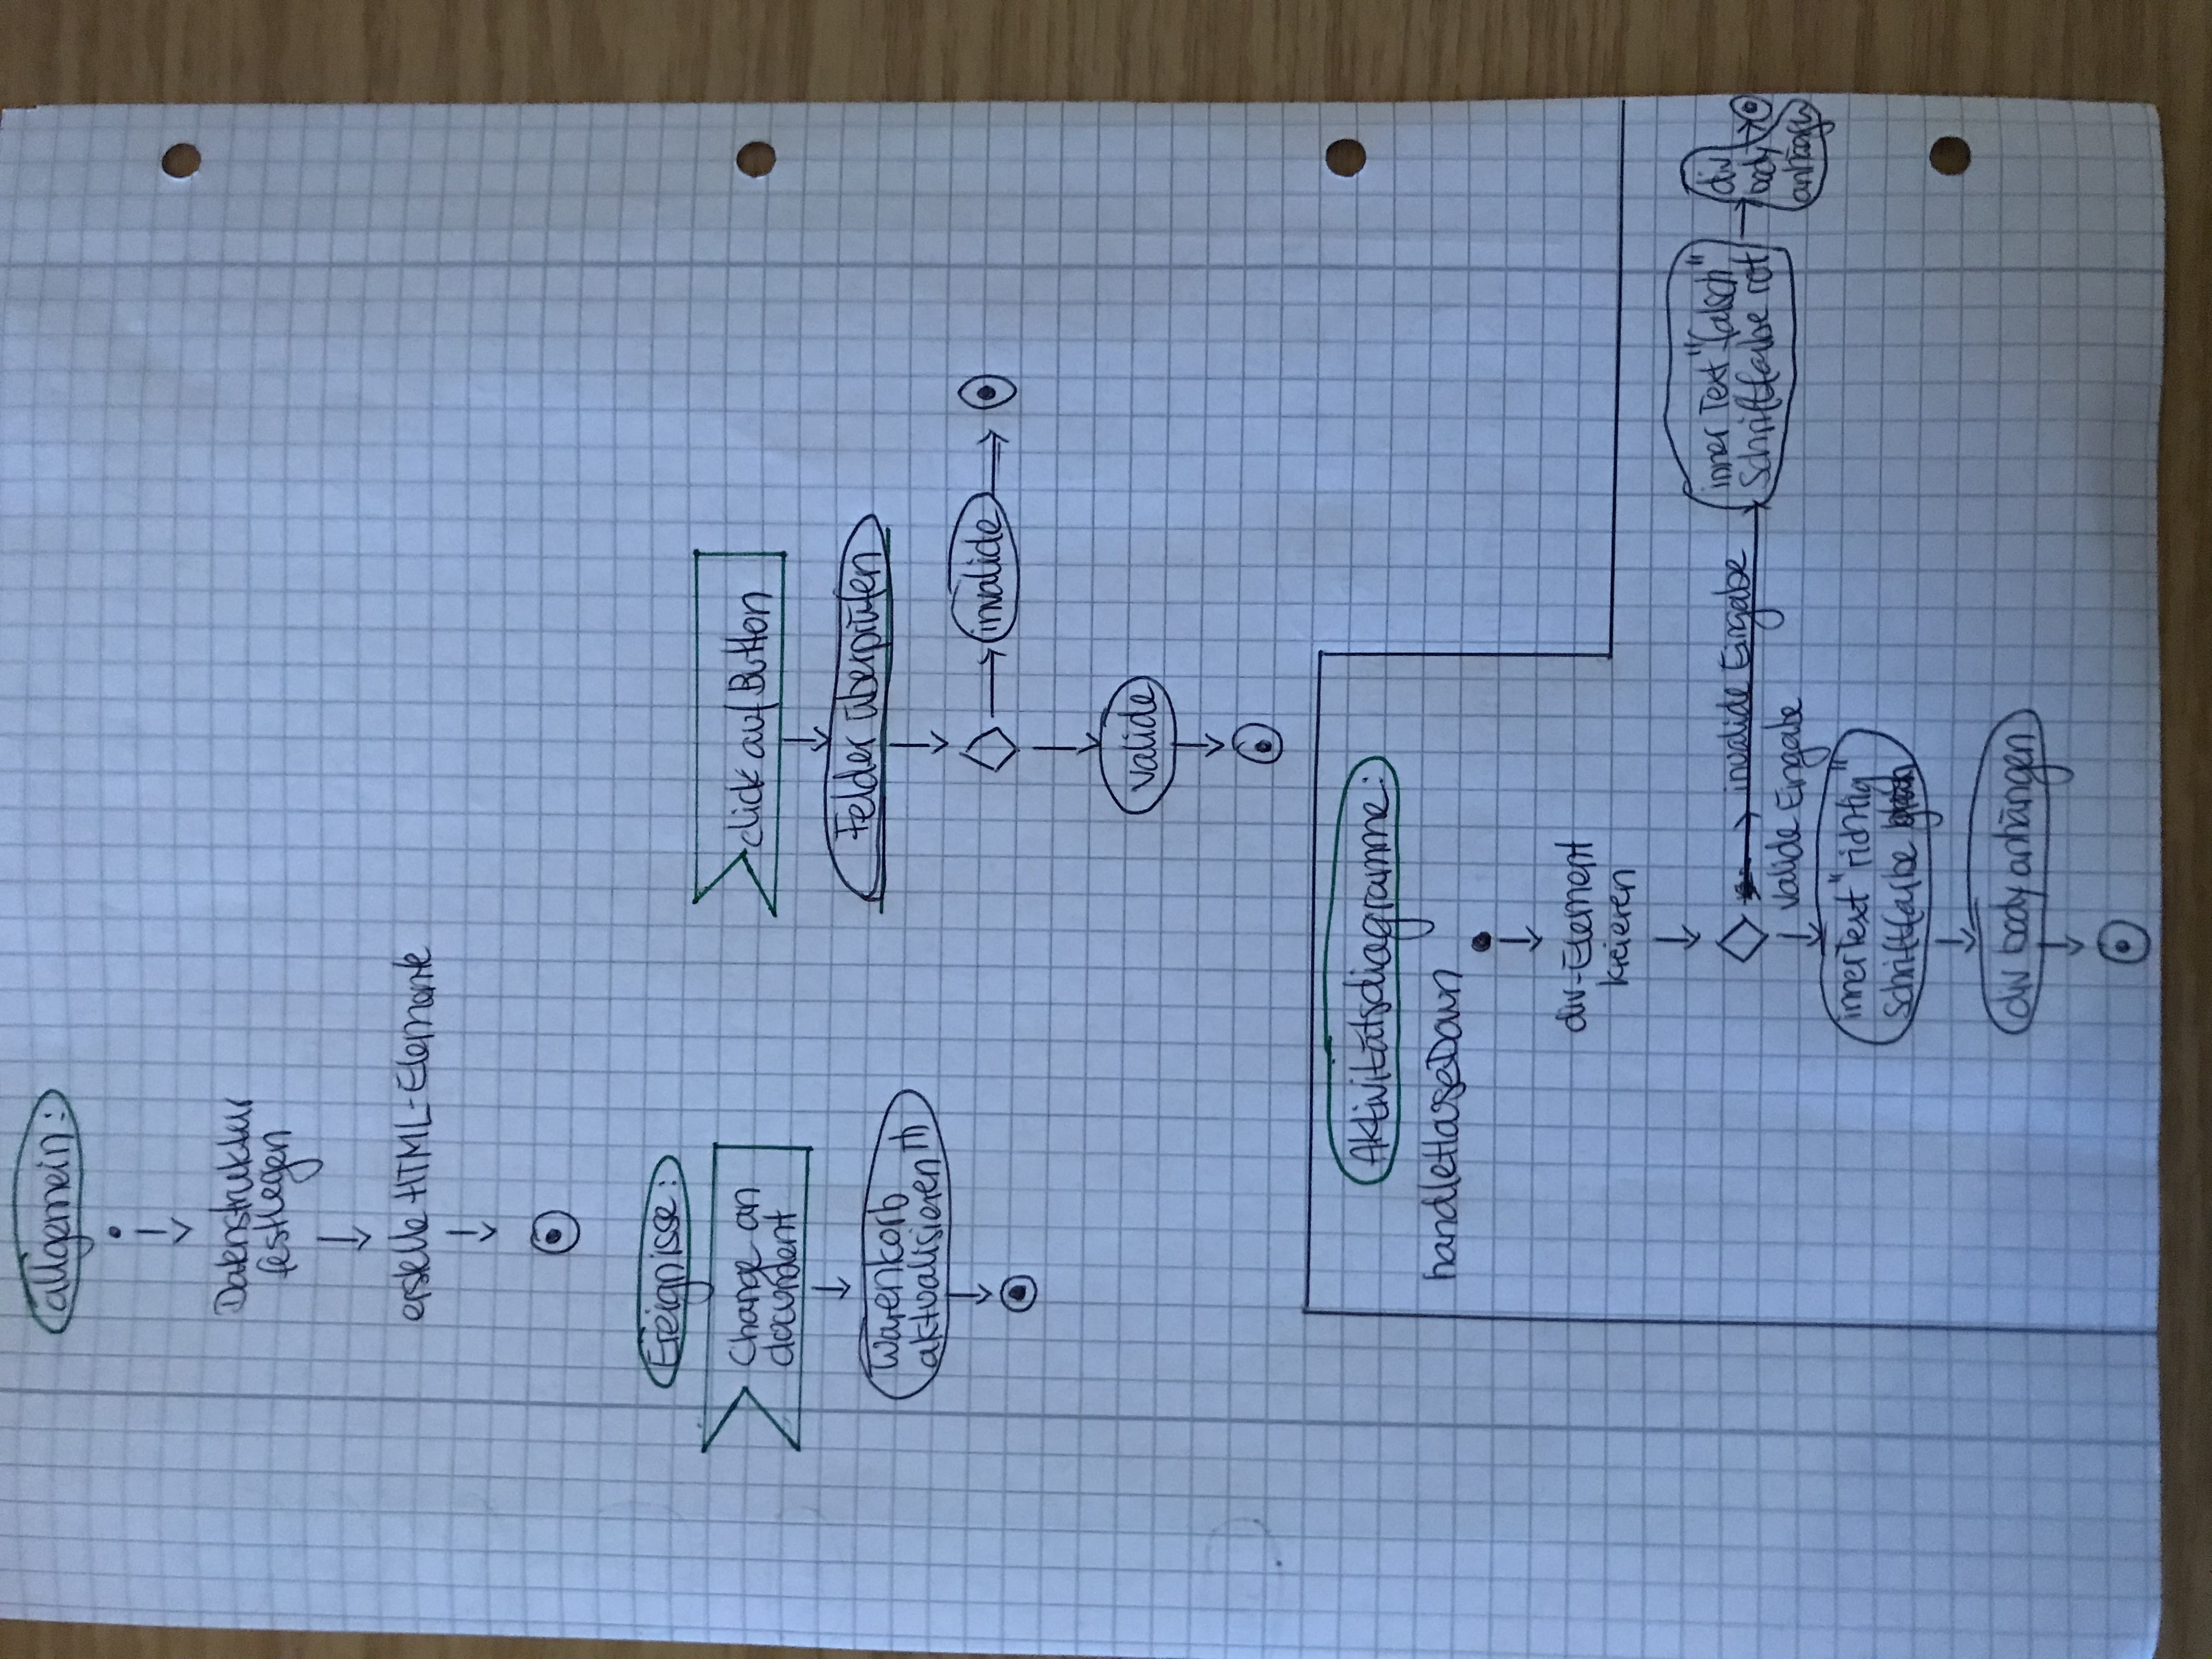 allgemein:
Datenstruktur
festlegen
erstelle HTML-Elemente
Ereignisse:
Change an
document
Warenkorb
aktualisieren
click auf Button
Felder überprüfen
invalide
valide
Aktivitätsdiagramme:
handleMouseDown
div-Element
kreieren
invalide Eingabe
valide Eingabe
inner Text "falsch"
Schriftfarbe rot
div
body
anhängen
innerText "richtig"
Schriftfarbe
div body anhängen